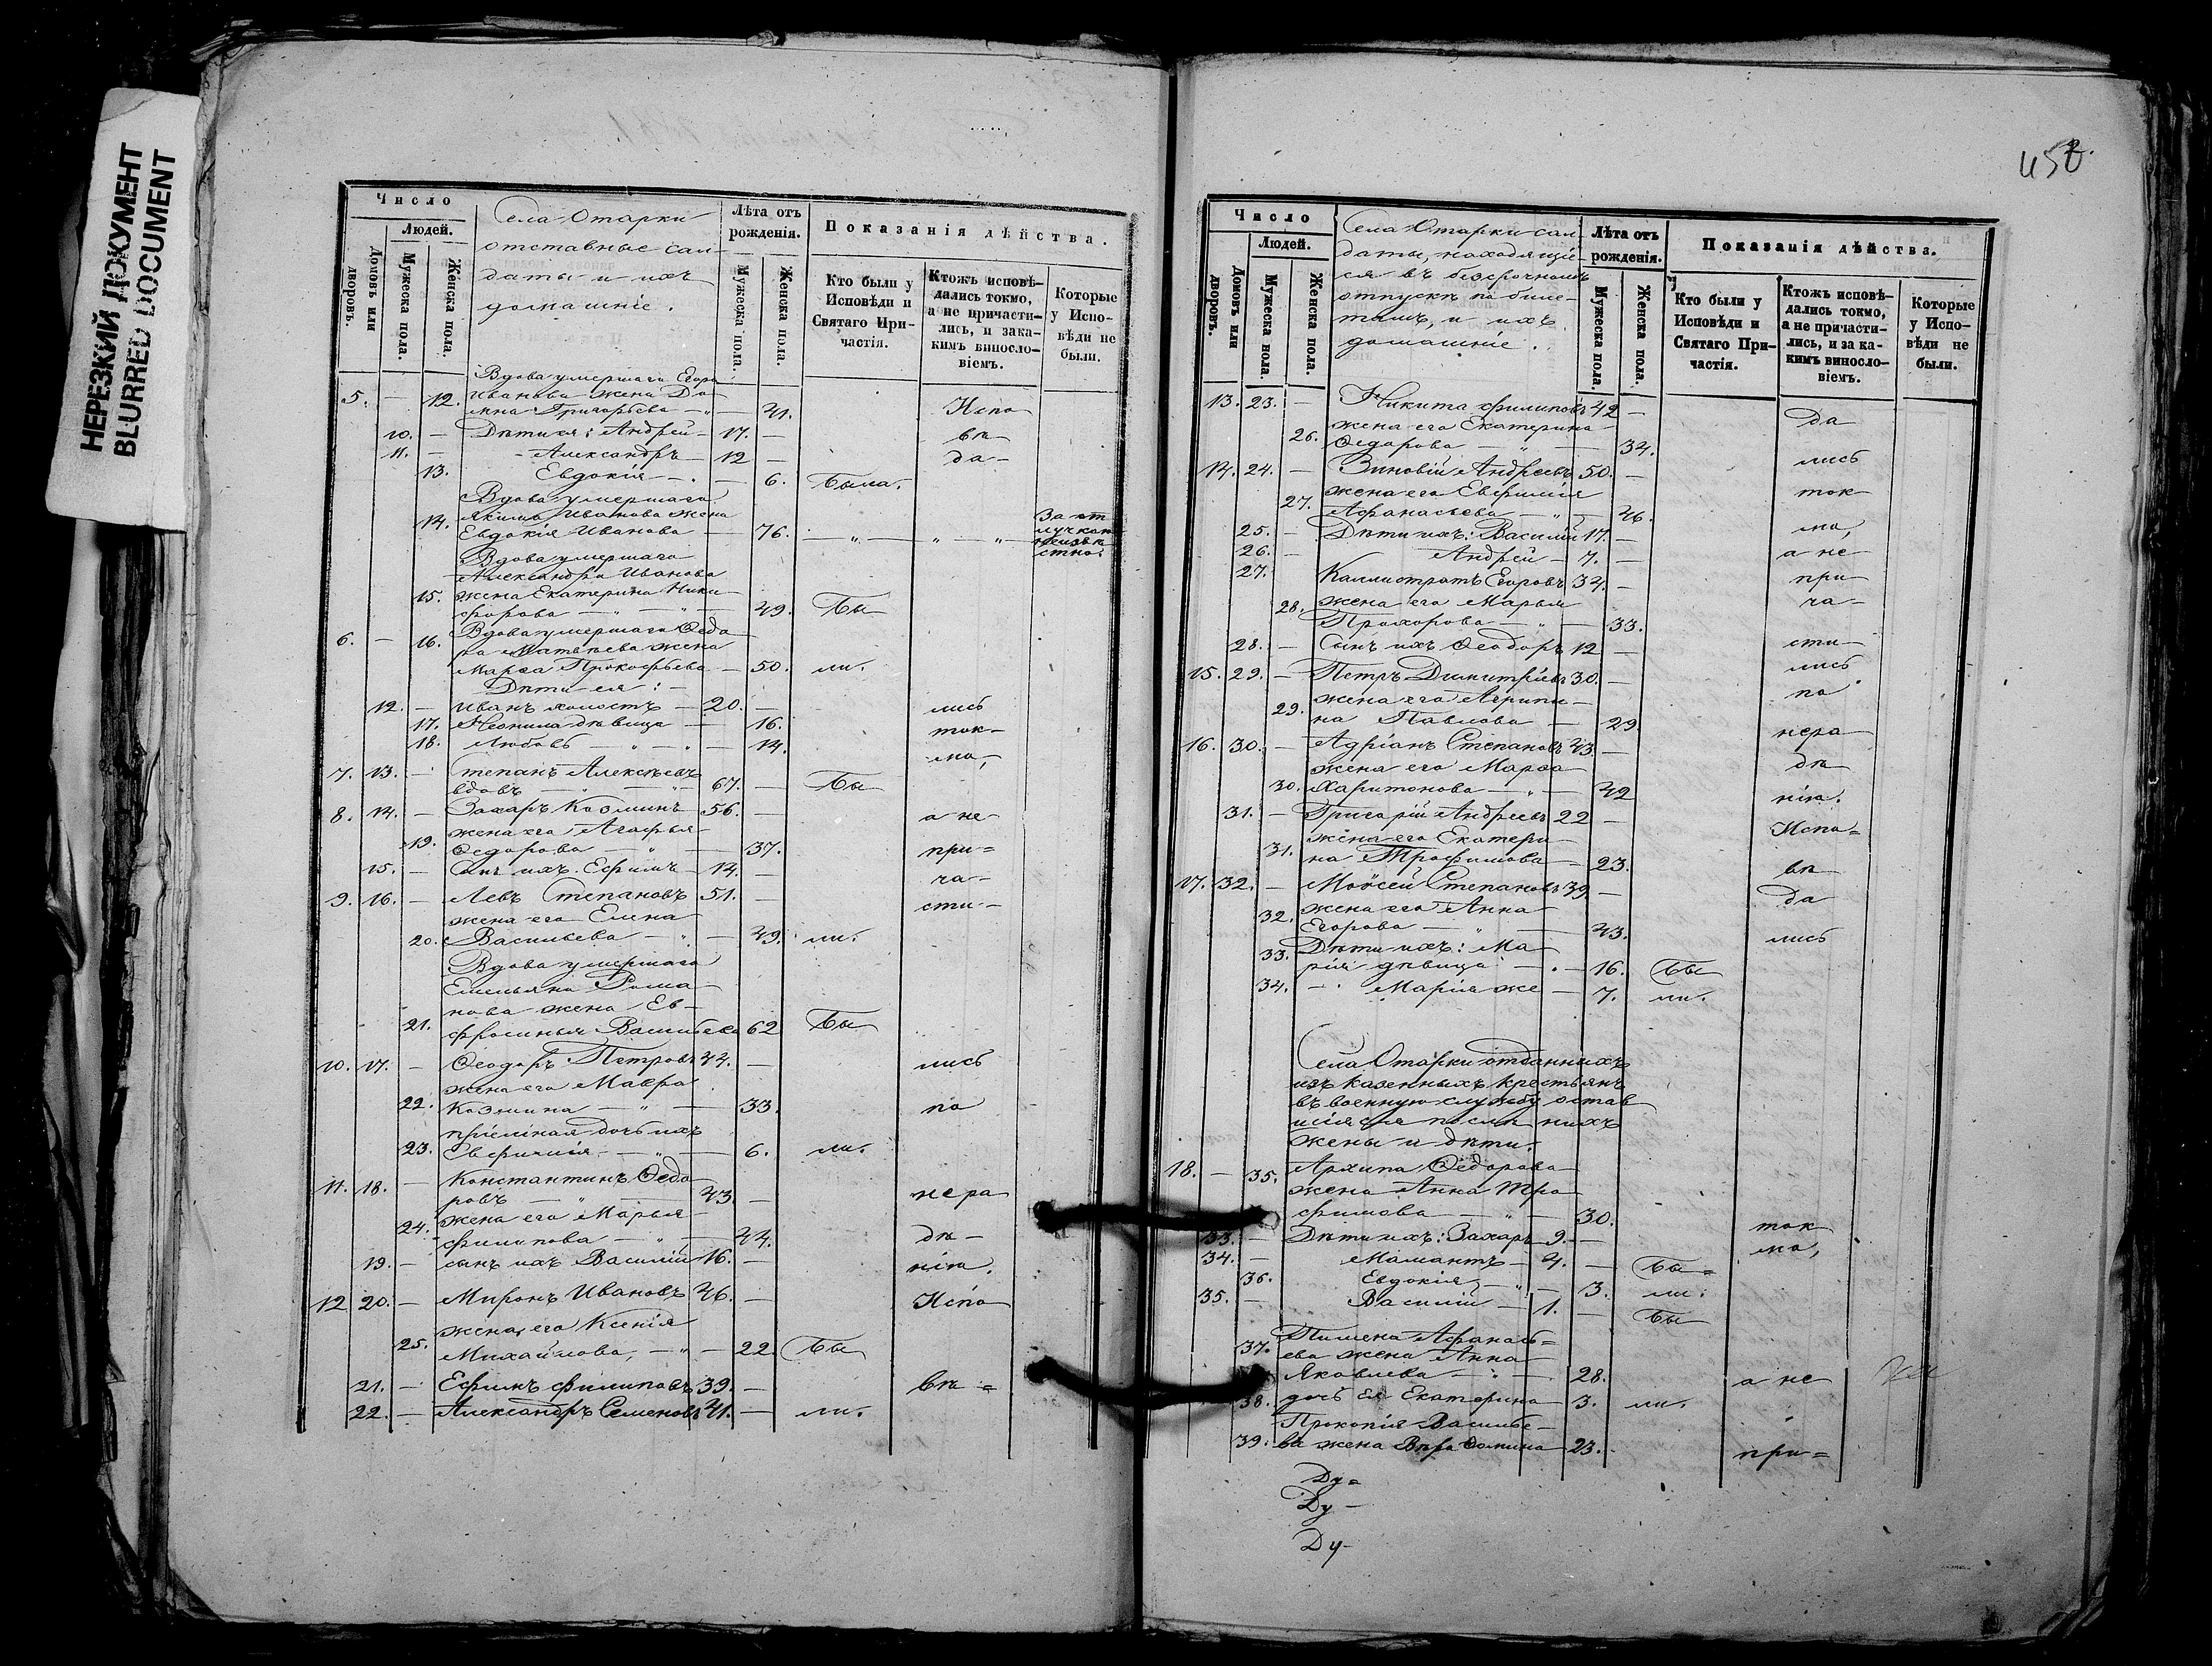 НЕРЕЗКИЙ ДОКУМЕНТ
BLURRED DOCUMENT
Число
Людей.
Домовъ или дворовъ.
Мужеска пола.
Женска пола.
Села Отарки
отставные сал-
даты и ихъ
домашніе.
Лѣта отъ рожденія.
Мужеска пола.
Женска пола.
Показанія дѣйства.
Кто были у Исповѣди и Святаго Причастія.
Ктожъ исповѣдались токмо, а не причастились, и закакимъ винословіемъ.
Которые у Исповѣди не были.
Вдова умершаго Егора
5. — 12. Иванова жена До-
мна Григорьева — 41. Испо
10. — Дѣти ея: Андрей — 17. — вѣ
11. — Александръ — 12 — да-
13. Евдокія — 6. Была.
Вдова умершаго
Якима Иванова жена
14. Евдокія Иванова — 76. — „ — „ — „ За от
лучкою
неизвѣ
стно.
Вдова умершаго
Александра Иванова
15. жена Екатерина Ники-
форова — „ — „ 49. Бы
6. — 16. Вдова умершаго Ѳедо
ра Матвѣева жена
Марѳа Прокофьева — 50. ли.
Дѣти ея: —
12. — Иванъ холостъ — 20. — лись
17. Неонила дѣвица — 16. ток-
18. Любовь — „ — „ — 14. мо,
7. 13. — Степанъ Алексѣевъ
вдовъ — „ — „ 67. — Бы
8. 14. — Захаръ Козминъ 56. — а не-
жена его Агафья
19. Ѳедорова — „ — 37. при=
15. — Сынъ ихъ Ефимъ — 14. — ча-
9. 16. — Левъ Степановъ 51. — сти-
жена его Елена
20. Васильева — „ — 49. ли.
Вдова умершаго
Емельяна Рома
нова жена Ев-
21. фросинья Васильева 62 Бы
10. 17. — Ѳеодоръ Петровъ 44. — лись
жена его Мавра
22. Козмина — „ — 33. по
пріемная дочь ихъ
23. Евфимія — „ — 6. ли.
11. 18. — Константинъ Ѳедо
ровъ — „ — 43 — нера
24. жена его Марья
Филипова — „ — 44. дѣ-
19. — сынъ ихъ Василій 16. — нію.
12 20. — Миронъ Ивановъ 46. — Испо
жена его Ксенія
25. Михайлова, — „ — 22. Бы
21. — Ефимъ Филиповъ 39. — вѣ=
22. — Александръ Семеновъ 41. — ли.
Число
Людей.
Домовъ или дворовъ.
Мужеска пола.
Женска пола.
Села Отарки сал-
даты, находящіе-
ся въ безсрочномъ
отпускѣ по биле-
тамъ, и ихъ
домашніе.
Лѣта отъ рожденія.
Мужеска пола.
Женска пола.
Показанія дѣйства.
Кто были у Исповѣди и Святаго Причастія.
Ктожъ исповѣдались токмо, а не причастились, и за какимъ винословіемъ.
Которые у Исповѣди не были.
13. 23. — Никита Филиповъ 42 — да
жена его Екатерина
26. Ѳедорова — „ — 34. лись
14. 24. — Зиновій Андреевъ 50. —
жена его Евфимія ток-
27. Афанасьева — „ — 46.
25. — Дѣти ихъ: Василій 17. — мо,
26. — Андрей — 7. — а не
27. Каллистратъ Егоровъ 34. — при
28. жена его Марья ча-
Прохорова — „ — 33.
28. — Сынъ ихъ Ѳеодоръ 12 — сти-
15. 29. — Петръ Димитріевъ 30. — лись
29. жена его Агрипи- по
на Павлова — 29
16. 30. — Адріанъ Степановъ 43. — нера
жена его Марѳа дѣ
30. Харитонова — „ — 42 нію.
31. — Григорій Андреевъ 22 — Испо=
31. жена его Екатери-
на Трофимова — 23. вѣ
17. 32. — Моѵсей Степановъ 39. — да
32. жена его Анна
Егорова — „ — 43. лись
33. Дѣти ихъ: Ма
рія дѣвица — „ — 16. Бы
34. — „ Марія же — 7. ли.
Села Отарки отданныхъ
изъ казенныхъ крестьянъ
въ военную службу остав
шіяся послѣ нихъ
жены и дѣти.
18. — 35. Архипа Ѳедорова
жена Анна Тро
фимова — „ — 30. ток
33. — Дѣти ихъ: Захаръ — 9. — мо,
34. — Мамантъ — 4. — Бы=
36. Евдокія — „ — 3. ли.
35. — Василій — 1. — Бы
37. Пимена Афанась=
ева жена Анна
Яковлева — „ — 28. а не
38. дочь ея Екатерина 3. ли.
Прокопія Василье-
39. ва жена Вѣра Ѳомина 23. при=
Ду=
Ду-
Ду-